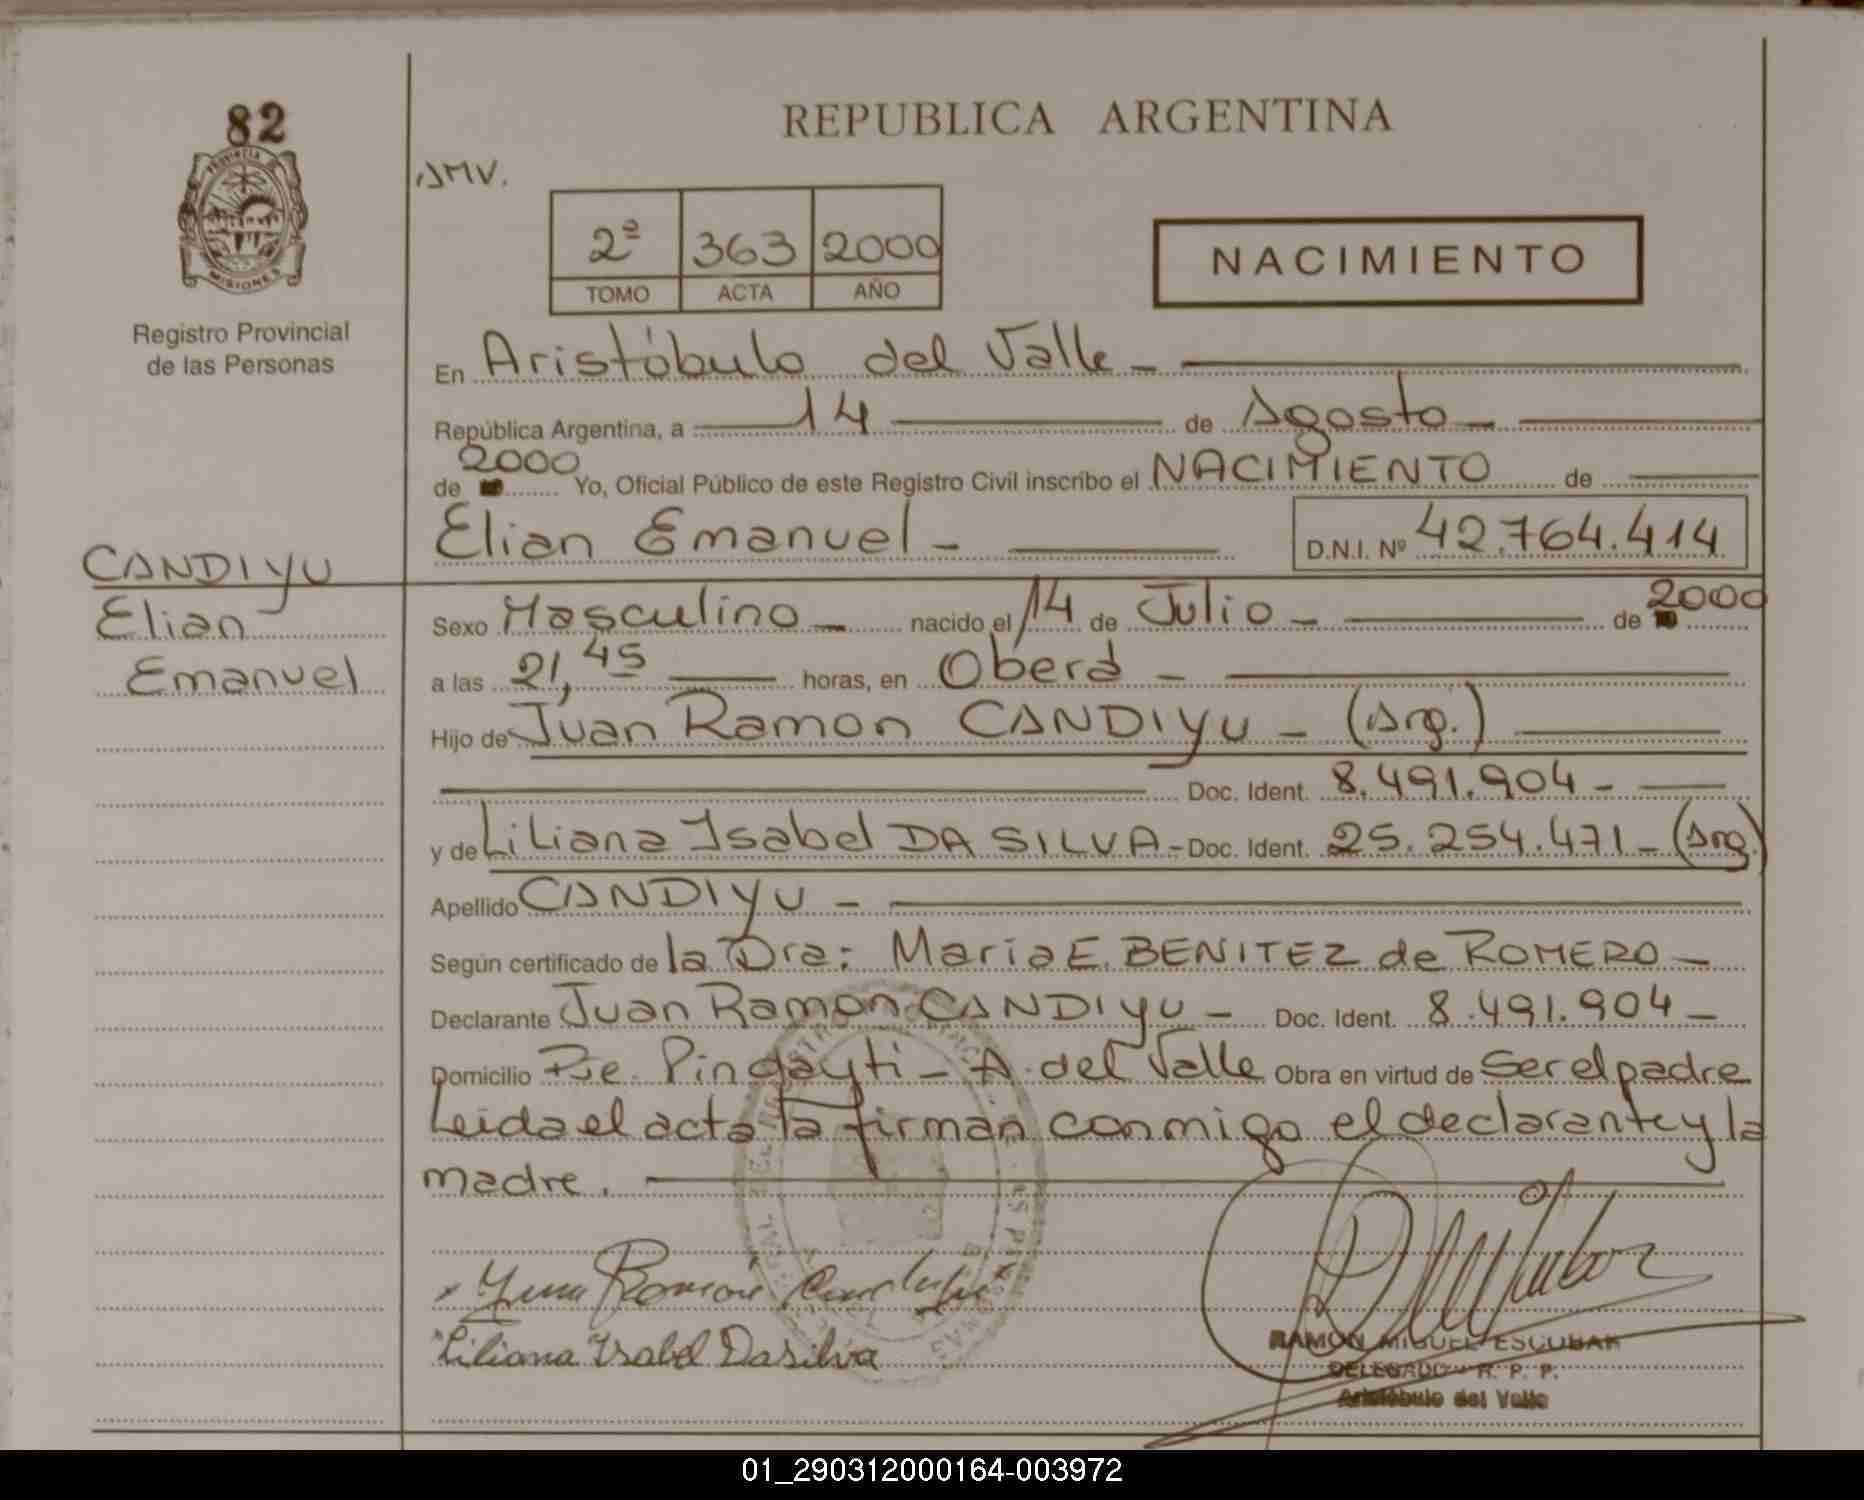 82
PROVINCIA
MISIONES
Registro Provincial
de las Personas
CANDIYU
Elian
Emanuel
REPUBLICA ARGENTINA
AMV.
2º 363 2000
TOMO ACTA AÑO
NACIMIENTO
En Aristóbulo del Valle -
República Argentina, a 14 de Agosto -
2000
de Yo, Oficial Público de este Registro Civil inscribo el NACIMIENTO de
Elian Emanuel - D.N.I. Nº 42.764.414
Sexo Masculino - nacido el 14 de Julio - de 2000
a las 21,45 horas, en Oberá -
Hijo de Juan Ramon CANDIYU - (Arg.)
Doc. Ident. 8.491.904 -
y de Liliana Isabel DA SILVA - Doc. Ident. 25.254.471 - (Arg.)
Apellido CANDIYU -
Según certificado de la Dra: María E. BENITEZ de ROMERO -
Declarante Juan Ramon CANDIYU - Doc. Ident. 8.491.904 -
Domicilio Pje. Pindayti - A. del Valle Obra en virtud de ser el padre
Leida el acta la firman conmigo el declarante y la
madre.
Juan Ramon
Liliana Isabel Dasilva
RAMON MIGUEL ESCOBAR
DELEGADO - R. P. P.
Aristóbulo del Valle
01_290312000164-003972